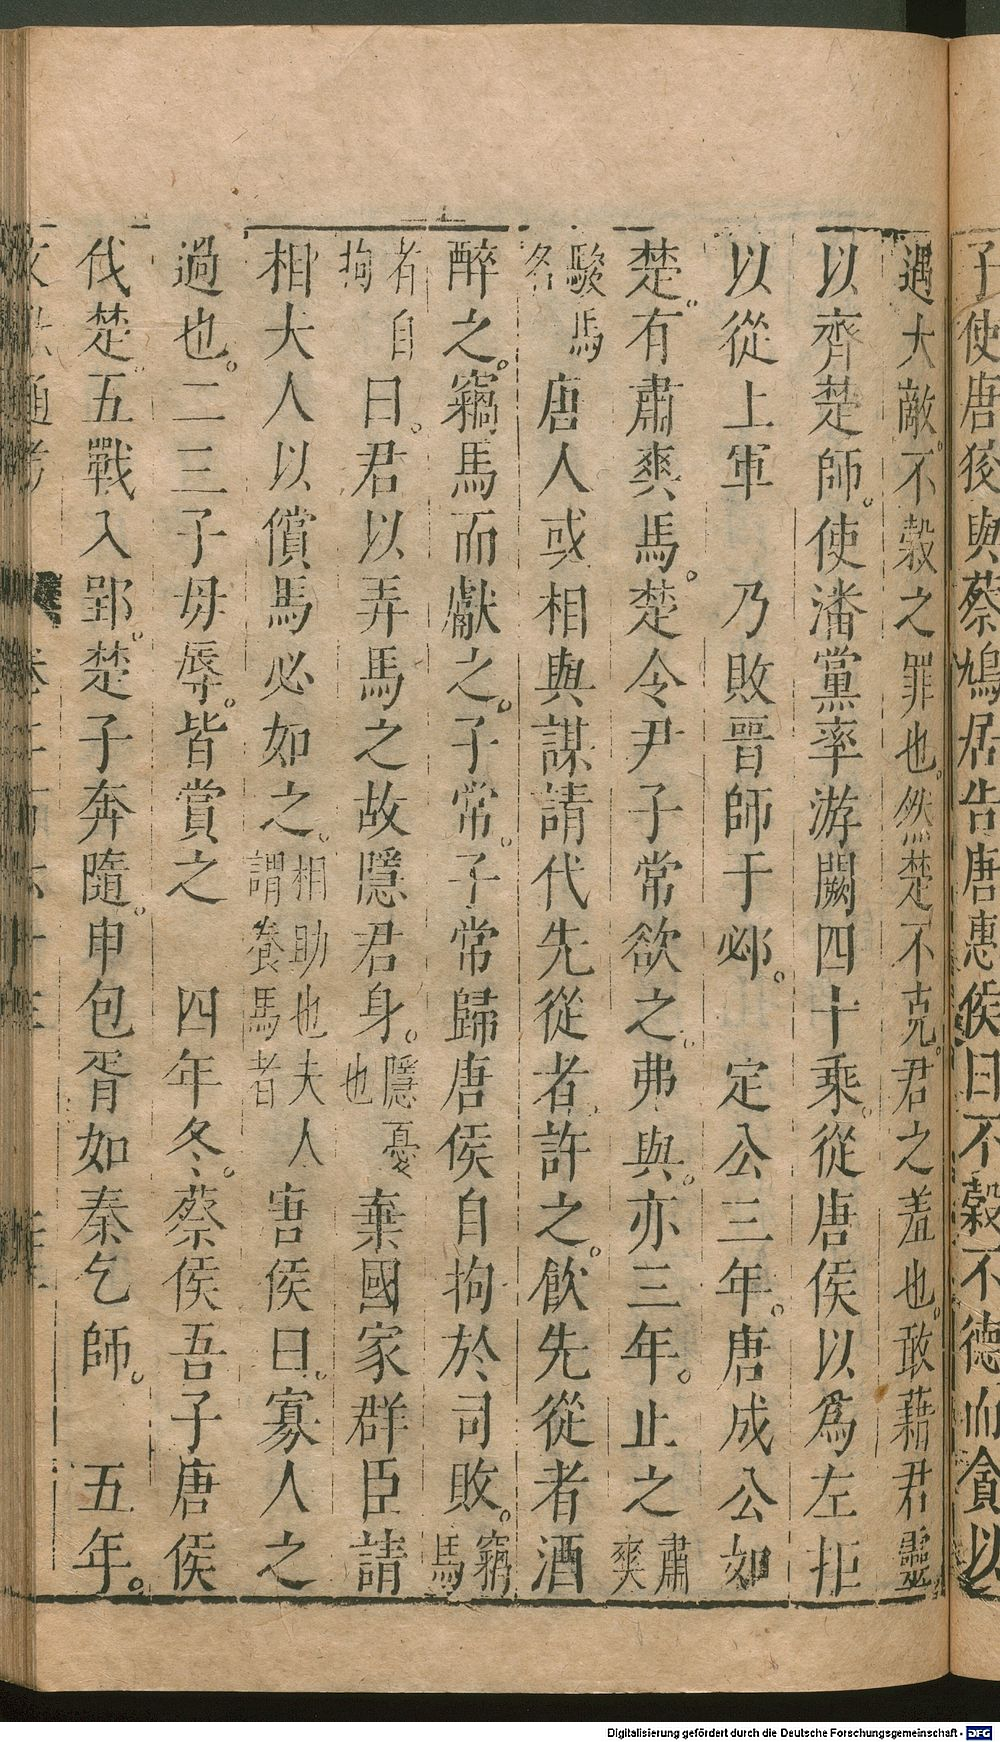 子使唐狡與蔡鳩居告唐惠侯曰不穀不德而貪以
遇大敵。不穀之罪也。然楚不克。君之羞也。敢藉君靈
以齊楚師。使潘黨率游闕四十乘。從唐侯以爲左拒
以從上軍　乃敗晉師于邲。　定公三年。唐成公如
楚。有肅爽馬。楚令尹子常欲之。弗與。亦三年。止之肅爽
駿馬名　唐人或相與謀請代先從者。許之。飮先從者酒
醉之。竊馬而獻之。子常。子常歸唐侯自拘於司敗。竊馬
者自拘　曰。君以弄馬之故隱君身。隱憂也　棄國家群臣請
相夫人以償馬必如之。相助也夫人謂養馬者　唐侯曰。寡人之
過也。二三子毋辱。皆賞之　四年冬。蔡侯吾子唐侯
伐楚五戰入郢。楚子奔隨。申包胥如秦乞師。　五年。
Digitalisierung gefördert durch die Deutsche Forschungsgemeinschaft - DFG